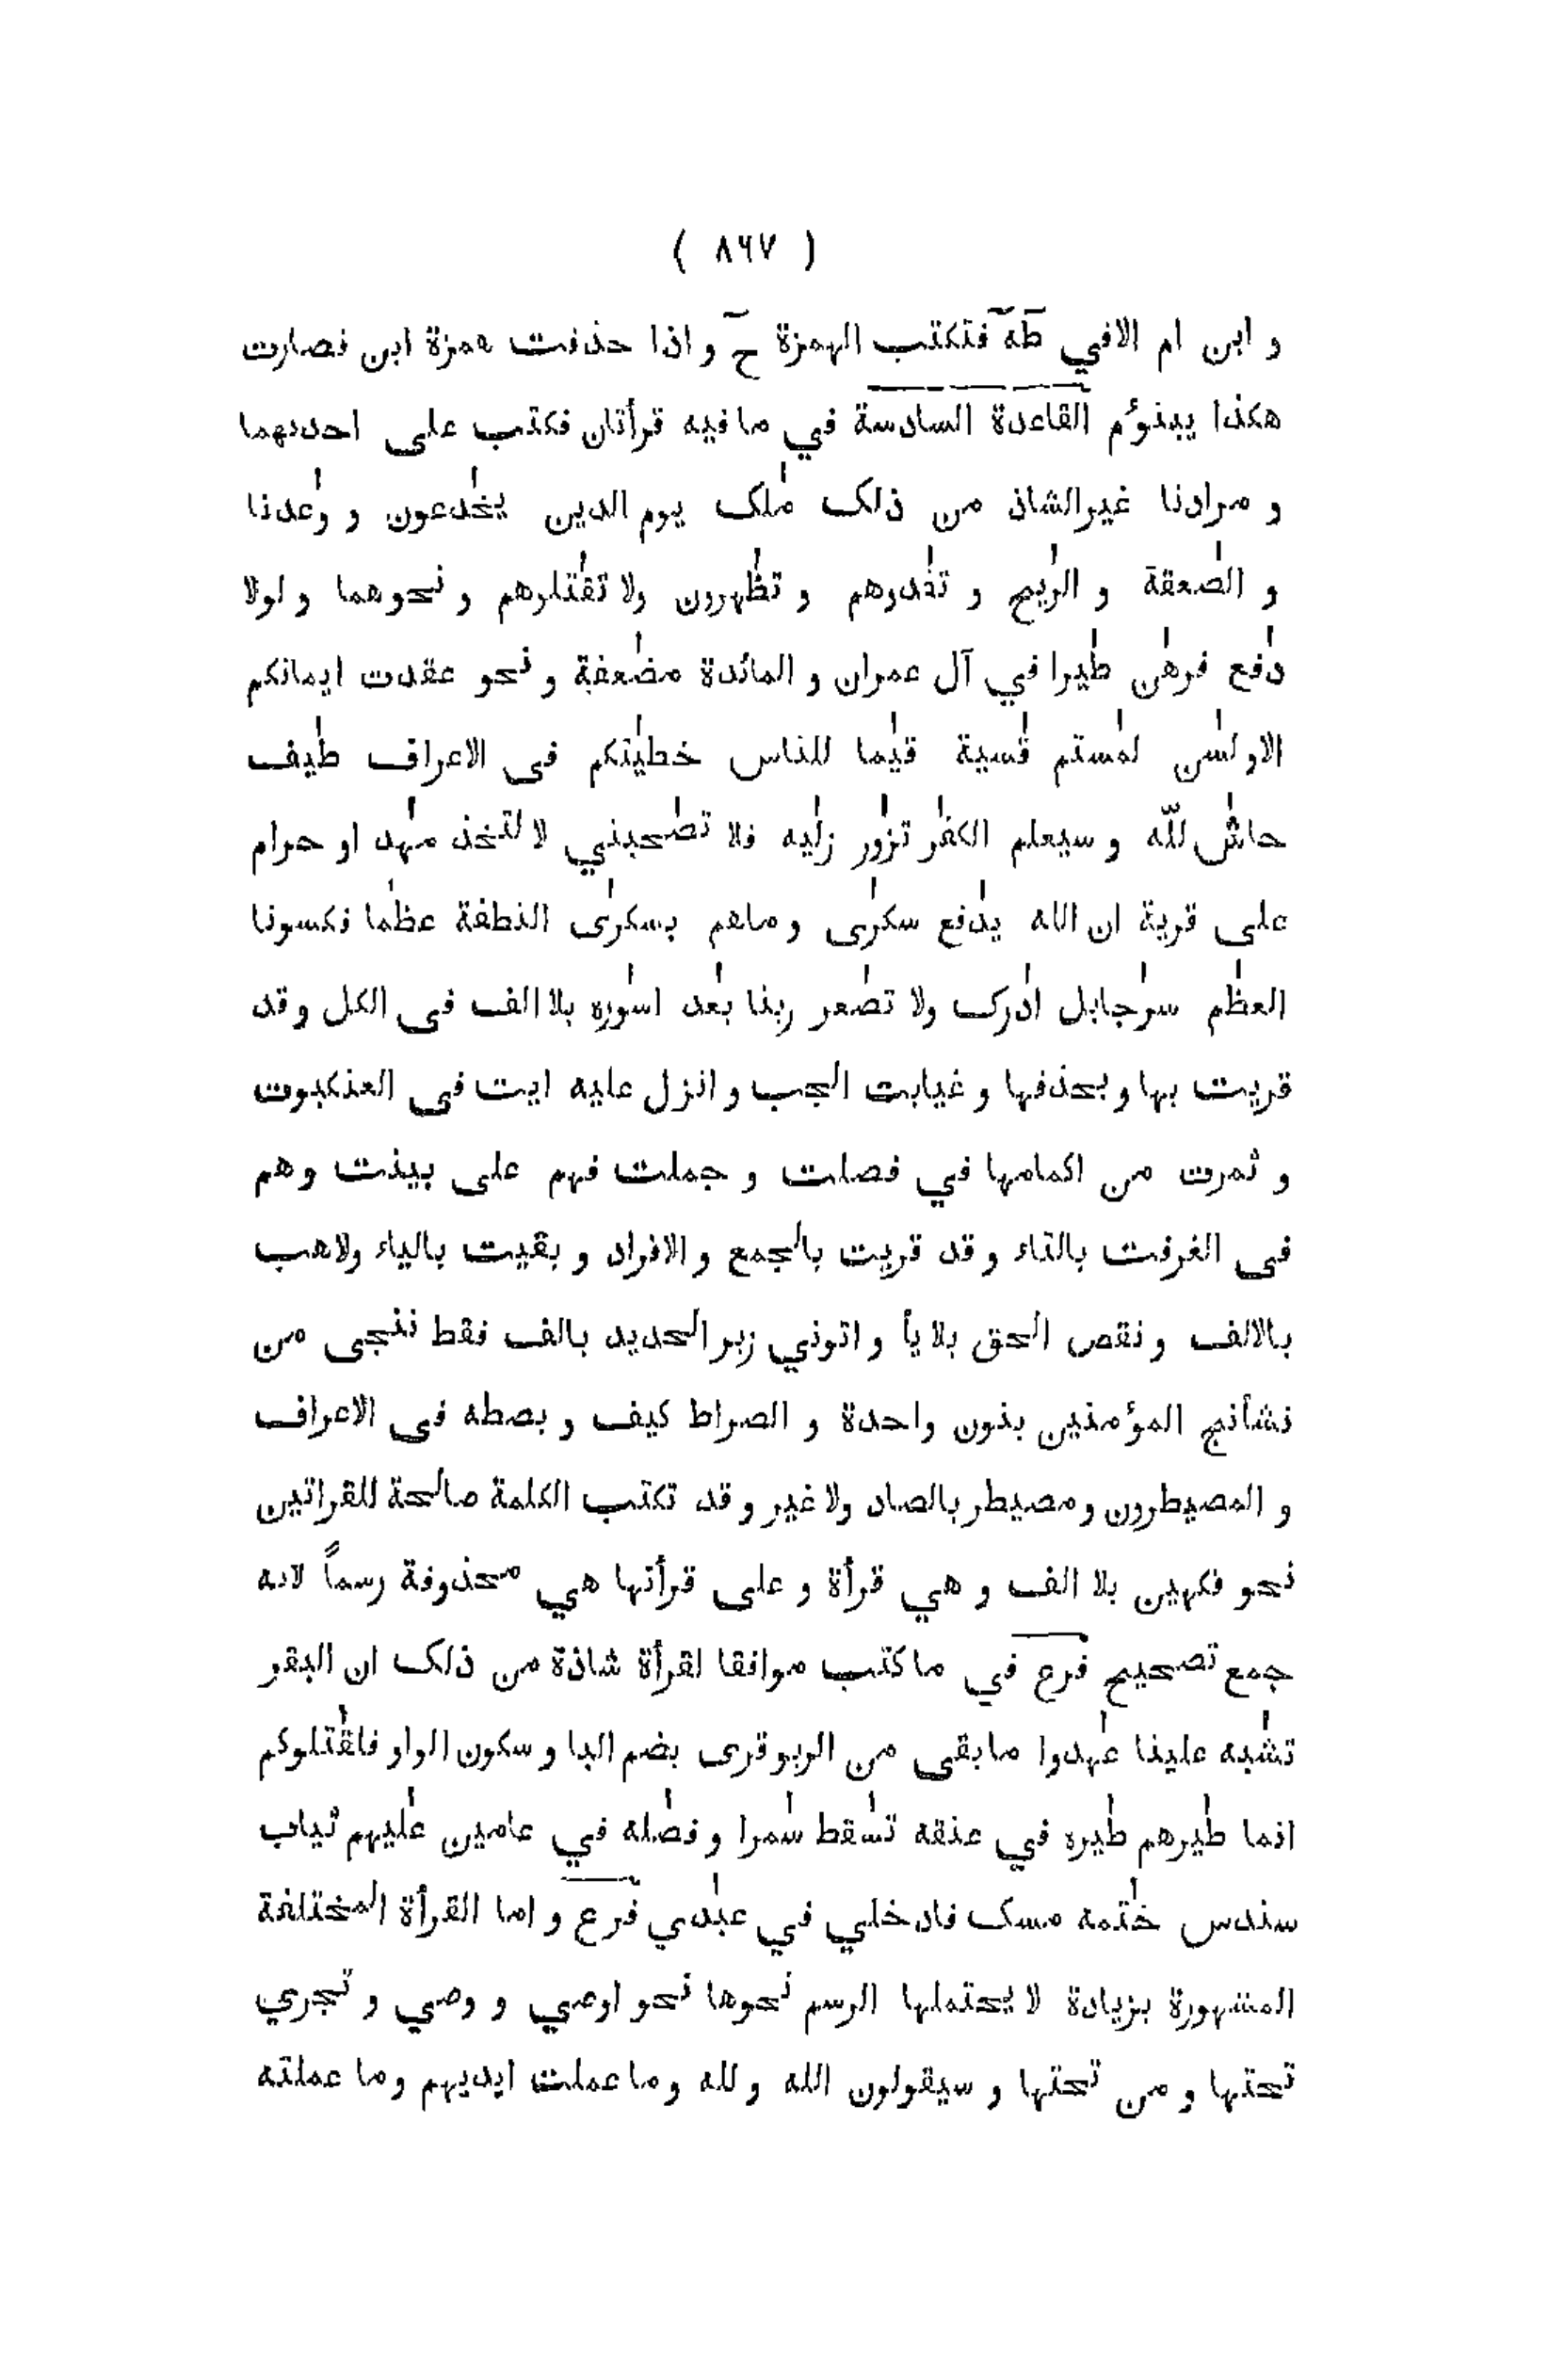 ( ٨٦٧ )
و ابن ام الا في طٰهٓ فتكتب الهمزة حٓ و اذا حذفت همزة ابن فصارت
هكذا يبنؤم القاعدة السادسة في ما فيه قرأتان فكتب على احدىهما
و مرادنا غيرالشاذ من ذلک مٰلک يوم الدين يخٰدعون و وٰعدنا
و الصٰعقة و الريٰح و تفٰدوهم و تظٰهرون ولا تقٰتلوهم و نحوهما و لولا
دٰفع فرهٰن طٰيرا في آل عمران و المائدة مضٰعفة و نحو عقدت ايمانكم
الاولٰسن لمٰستم قٰسية قيٰما للناس خطيٰتكم فى الاعراف طٰيف
حاشٰ للّه و سيعلم الكفٰر تزٰور زٰليه فلا تصٰحبني لا لتخذ مهٰد او حرام
على قرية ان الله يدٰفع سكرٰى و ماهم بسكرٰى النطفة عظٰما فكسونا
العظٰم سرٰجابل ادٰرک ولا تصٰعر ربنا بٰعد اسٰوره بلا الف فى الكل و قد
قريت بها و بحذفها و غيابت الجب و انزل عليه ايت فى العنكبوت
و ثمرت من اكمامها في فصلت و جملت فهم على بينت وهم
فى الغرفت بالتاء و قد قريت بالجمع و الافراد و بقيت بالياء ولاهب
بالالف و نقص الحق بلا يأ و اتوني زبر الحديد بالف فقط ننجى من
نشأننج المؤمنين بنون واحدة و الصراط كيف و بصطه فى الاعراف
و المصيطرون و مصيطر بالصاد ولا غير و قد تكتب الكلمة صالحة للقراتين
نحو فكهين بلا الف و هي قرأة و على قرأتها هي محذوفة رسماً لانه
جمع تصحيح فرع في ما كتب موافقا لقرأة شاذة من ذلک ان البقر
تشٰبه علينا عٰهدوا ما بقى من الربو قرى بضم البا و سكون الواو فلقٰتلوكم
انما طٰيرهم طٰيره في عنقه تسٰقط سٰمرا و فصٰله في عامين عٰليهم ثياب
سندس ختٰمه مسک فادخلي في عبٰدي فرع و اما القرأة المختلفة
المشهورة بزيادة لا يحتملها الرسم نحوها نحو اوصي و وصي و تجري
تحتها و من تحتها و سيقولون الله و لله و ما عملت ايديهم و ما عملته